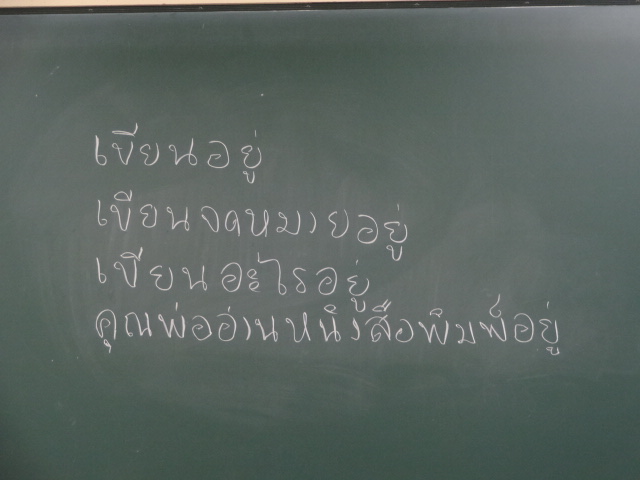 เขียนอยู่
เขียนจดหมายอยู่
เขียนอะไรอยู่
คุณพ่ออ่านหนังสือพิมพ์อยู่